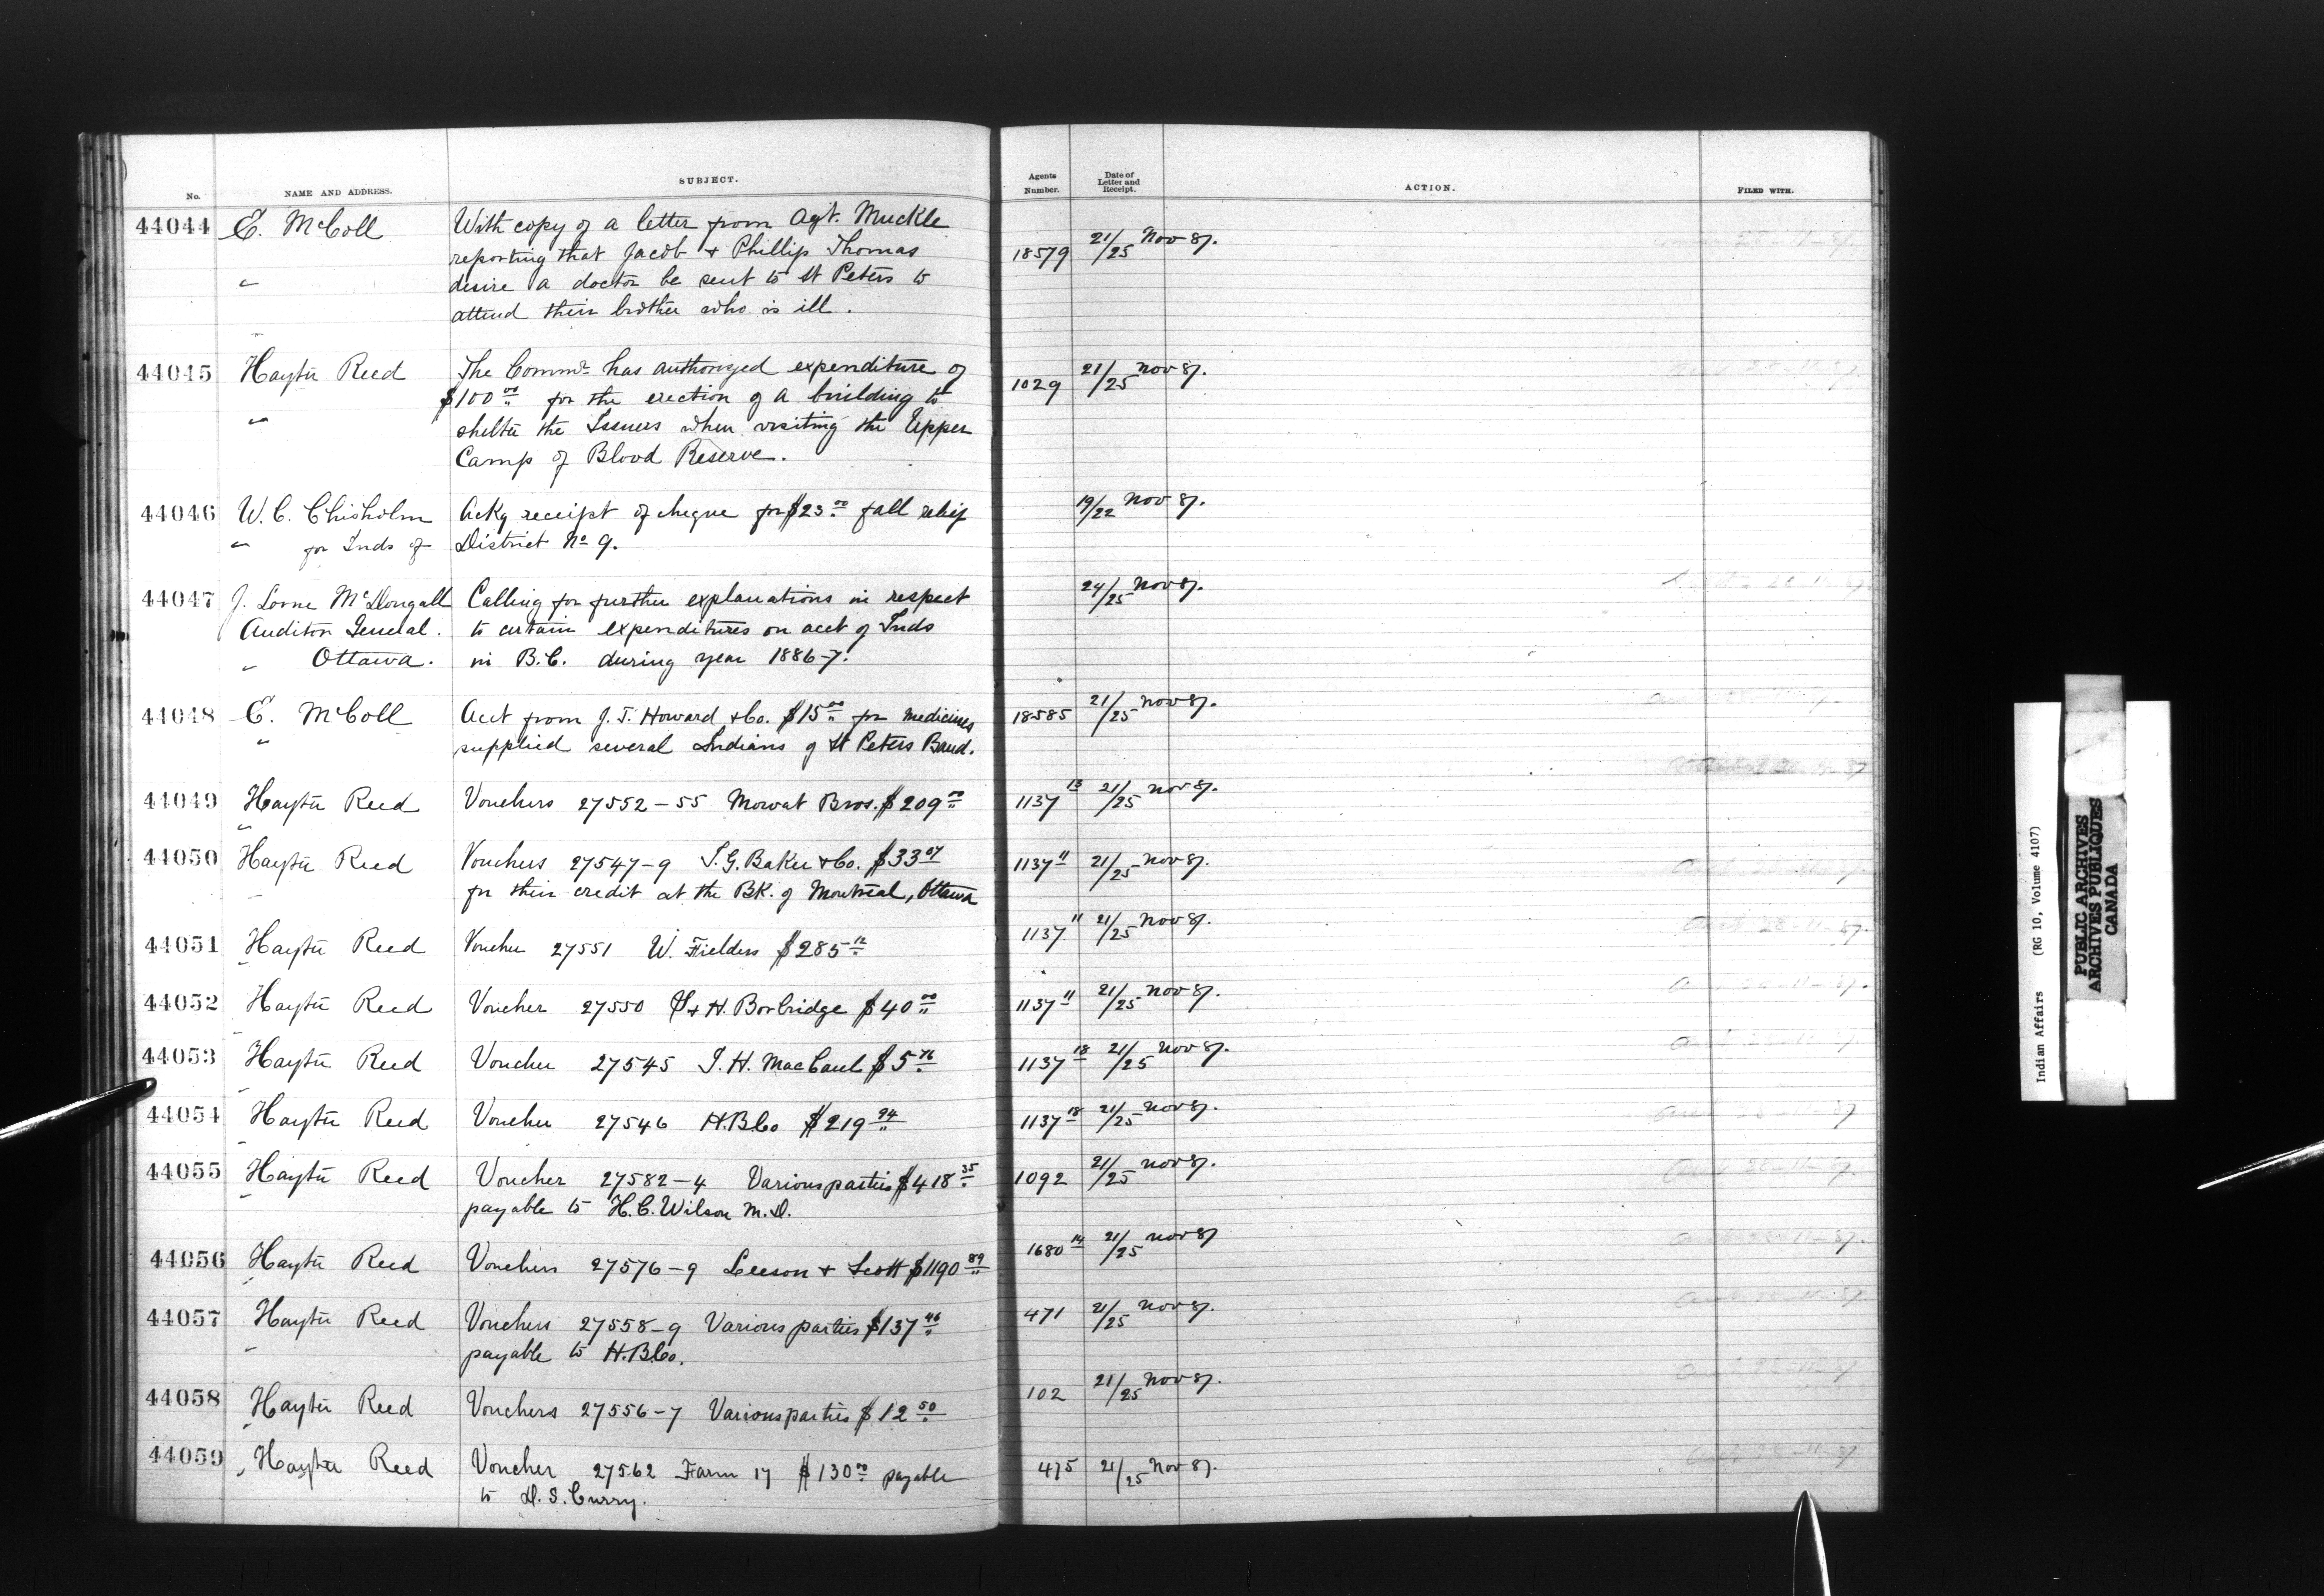 No. NAME AND ADDRESS. SUBJECT. Agents Number. Date of Letter and Receipt. ACTION. FILED WITH.
44044 E. McColl With copy of a letter from Agt. Muckle 18579 21/25 Nov 87.
reporting that Jacob + Phillip Thomas
" desire a doctor be sent to St Peters to
attend their brother who is ill.
44045 Hayter Reed The Commr has authorized expenditure of 1029 21/25 Nov 87.
$100 00 for the erection of a building to
" shelter the Issuers when visiting the Upper
Camp of Blood Reserve.
44046 W. C. Chisholm Ackg receipt of cheque for $23 00 fall relief 19/22 Nov 87.
" for Inds of District No 9.
44047 J. Lorne McDougall Calling for further explanations in respect 24/25 Nov 87.
Auditor General. to certain expenditures on acct of Inds
" Ottawa. in B.C. during year 1886-7.
44048 E. McColl Acct from J. J. Howard & Co. $15 00 for medicines 18585 21/25 Nov 87.
" supplied several Indians of St Peters Band.
44049 Hayter Reed Vouchers 27552-55 Mowat Bros. $209 00 1137 13 21/25 Nov 87.
44050 Hayter Reed Vouchers 27547-9 I. G. Baker & Co. $33 07 1137 11 21/25 Nov 87.
for their credit at the Bk. of Montreal, Ottawa
44051 Hayter Reed Voucher 27551 W. Fielders $285 12 1137 11 21/25 Nov 87.
44052 Hayter Reed Voucher 27550 S + H. Borbridge $40 00 1137 11 21/25 Nov 87.
44053 Hayter Reed Voucher 27545 J. H. MacCaul $5 76 1137 18 21/25 Nov 87.
44054 Hayter Reed Voucher 27546 H.B.Co $219 94 1137 18 21/25 Nov 87.
44055 Hayter Reed Voucher 27582-4 Various parties $418 35 1092 21/25 Nov 87.
payable to H. C. Wilson M.D.
44056 Hayter Reed Vouchers 27576-9 Leeson + Scott $1190 89 1680 14 21/25 Nov 87
44057 Hayter Reed Vouchers 27558-9 Various parties $137 46 471 21/25 Nov 87.
payable to H.B.Co.
44058 Hayter Reed Vouchers 27556-7 Various parties $12 50 102 21/25 Nov 87.
44059 Hayter Reed Voucher 27562 Farm 17 $130 00 payable 475 21/25 Nov 87.
to D. S. Curry.
Indian Affairs (RG 10, Volume 4107)
PUBLIC ARCHIVES
ARCHIVES PUBLIQUES
CANADA